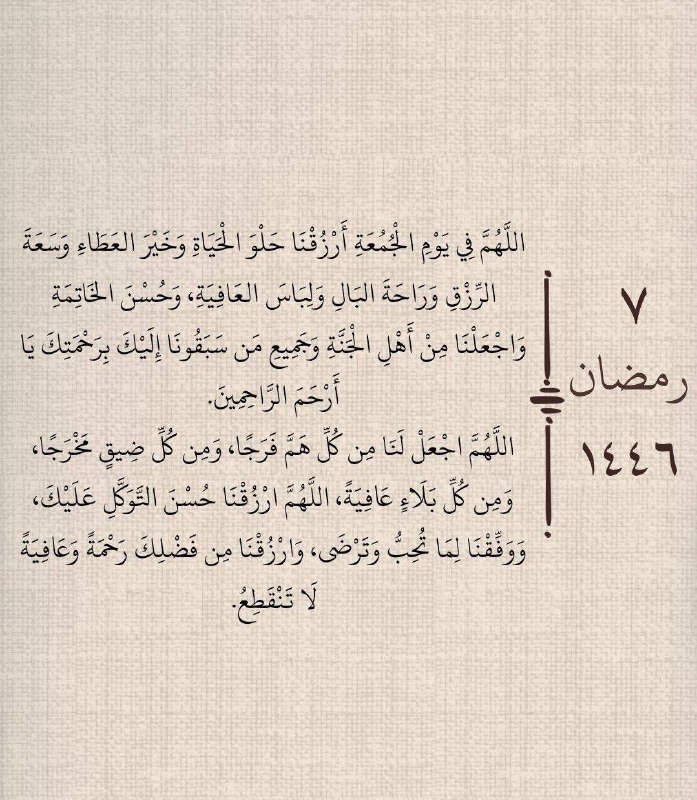 ٧
رمضان
١٤٤٦
اللَّهُمَّ فِي يَوْمِ الْجُمُعَةِ أَرْزُقْنَا حَلْوَ الْحَيَاةِ وَخَيْرَ العَطَاءِ وَسَعَةَ
الرِّزْقِ وَرَاحَةَ البَالِ وَلِبَاسَ العَافِيَةِ، وَحُسْنَ الخَاتِمَةِ
وَاجْعَلْنَا مِنْ أَهْلِ الْجَنَّةِ وَجَمِيعِ مَن سَبَقُونَا إِلَيْكَ بِرَحْمَتِكَ يَا
أَرْحَمَ الرَّاحِمِينَ.
اللَّهُمَّ اجْعَلْ لَنَا مِن كُلِّ هَمَّ فَرَجًا، وَمِن كُلِّ ضِيقٍ مَخْرَجًا،
وَمِن كُلِّ بَلَاءٍ عَافِيَةً، اللَّهُمَّ ارْزُقْنَا حُسْنَ التَّوَكَّلِ عَلَيْكَ،
وَوَفِّقْنَا لِمَا تُحِبُّ وَتَرْضَى، وَارْزُقْنَا مِن فَضْلِكَ رَحْمَةً وَعَافِيَةً
لَا تَنْقَطِعُ.